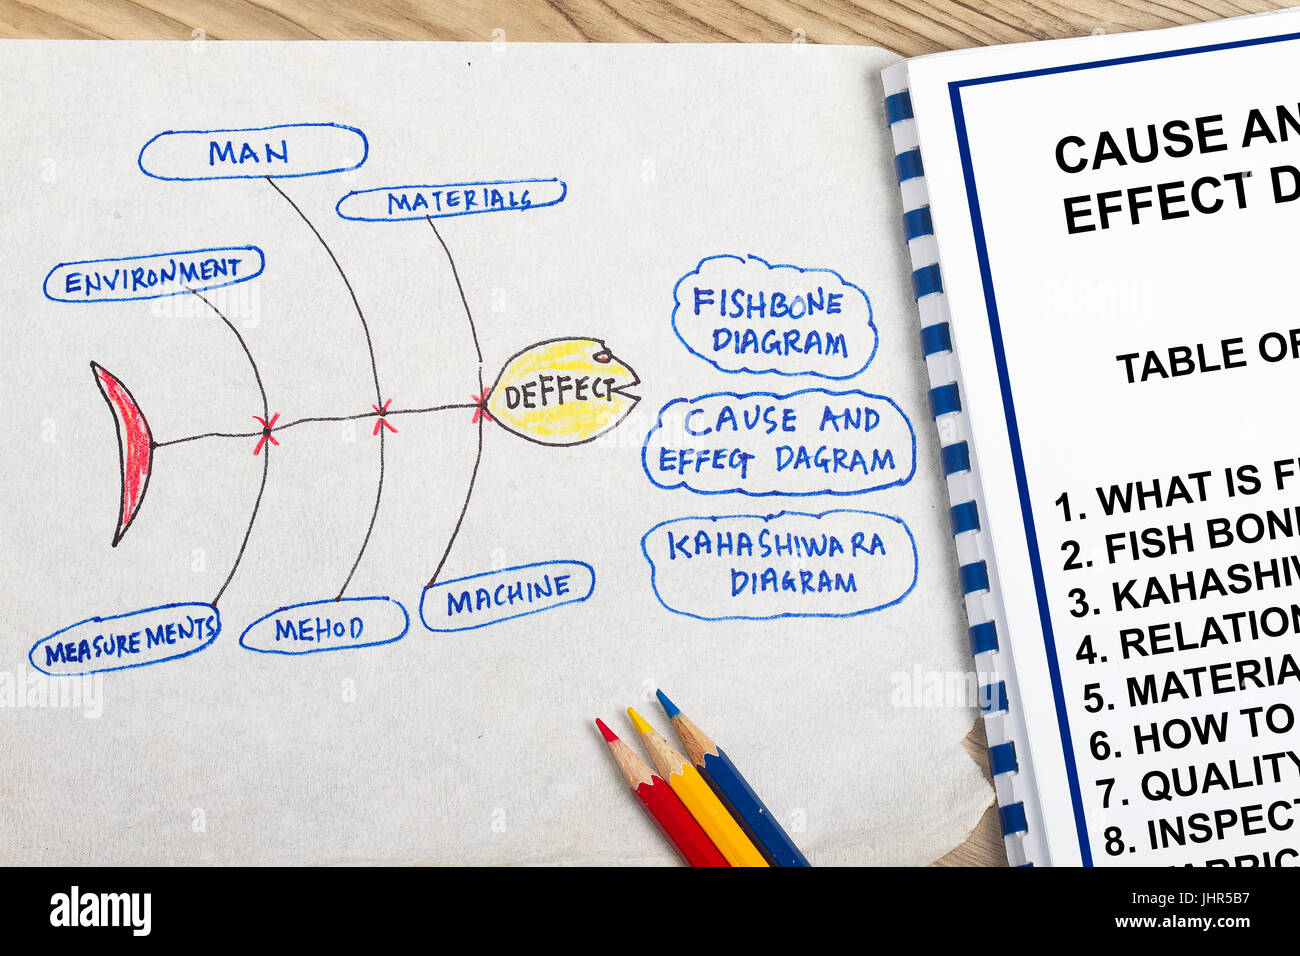 MAN
MATERIALS
ENVIRONMENT
DEFFECT
MEASUREMENTS
MEHOD
MACHINE
FISHBONE
DIAGRAM
CAUSE AND
EFFECT DAGRAM
KAHASHIWARA
DIAGRAM
CAUSE AN
EFFECT D
TABLE OF
1. WHAT IS F
2. FISH BON
3. KAHASHIW
4. RELATION
5. MATERIA
6. HOW TO
7. QUALITY
8. INSPECT
alamy
Image ID: JHR5B7
www.alamy.com